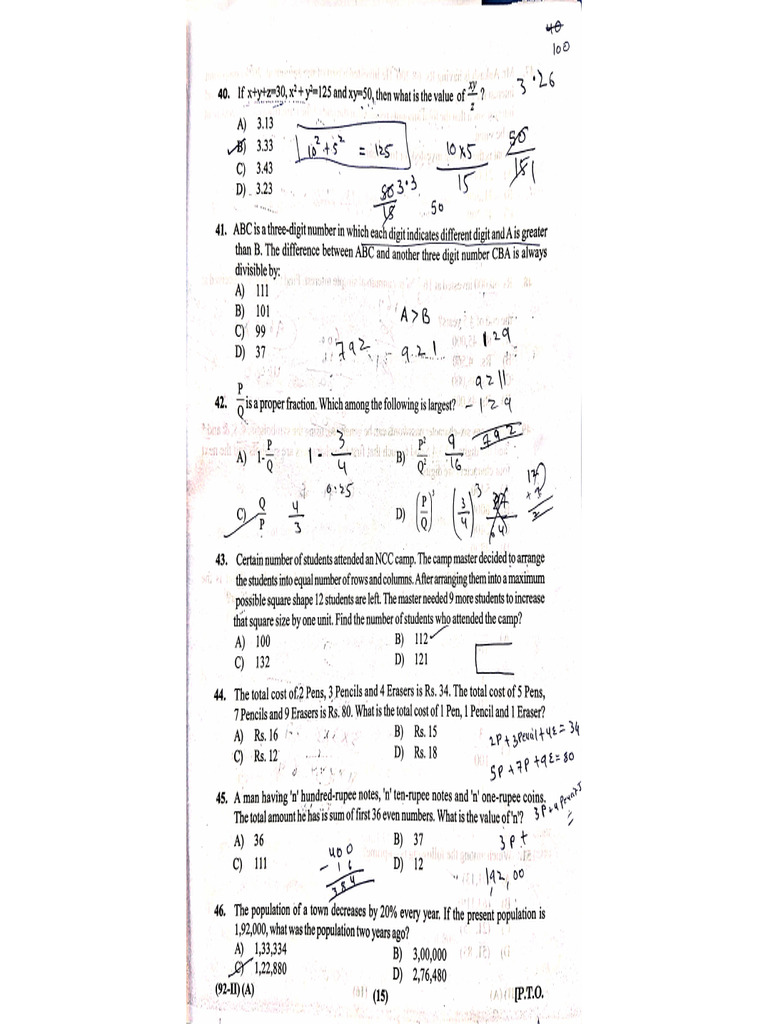 40
100
40. If x+y+z=30, x² + y²=125 and xy=50, then what is the value of xy/z ?
3.26
A) 3.13
B) 3.33
C) 3.43
D) 3.23
10² + 5² = 125
10×5/15
50 3.3
18
50
41. ABC is a three-digit number in which each digit indicates different digit and A is greater
than B. The difference between ABC and another three digit number CBA is always
divisible by:
A) 111
B) 101
C) 99
D) 37
A>B
792
921
129
- 129
792
42. P/Q is a proper fraction. Which among the following is largest?
A) 1-P/Q
1 - 3/4
0.25
B) P²/Q²
9/16
C) Q/P
4/3
D) (P/Q)³
(3/4)³
43. Certain number of students attended an NCC camp. The camp master decided to arrange
the students into equal number of rows and columns. After arranging them into a maximum
possible square shape 12 students are left. The master needed 9 more students to increase
that square size by one unit. Find the number of students who attended the camp?
A) 100
B) 112
C) 132
D) 121
44. The total cost of 2 Pens, 3 Pencils and 4 Erasers is Rs. 34. The total cost of 5 Pens,
7 Pencils and 9 Erasers is Rs. 80. What is the total cost of 1 Pen, 1 Pencil and 1 Eraser?
A) Rs. 16
B) Rs. 15
C) Rs. 12
D) Rs. 18
2P+3Pencil+4E=34
5P+7P+9E=80
45. A man having 'n' hundred-rupee notes, 'n' ten-rupee notes and 'n' one-rupee coins.
The total amount he has is sum of first 36 even numbers. What is the value of 'n'?
A) 36
B) 37
C) 111
D) 12
3P+
400
- 16
384
192,00
46. The population of a town decreases by 20% every year. If the present population is
1,92,000, what was the population two years ago?
A) 1,33,334
B) 3,00,000
C) 1,22,880
D) 2,76,480
(92-II) (A)
(15)
[P.T.O.